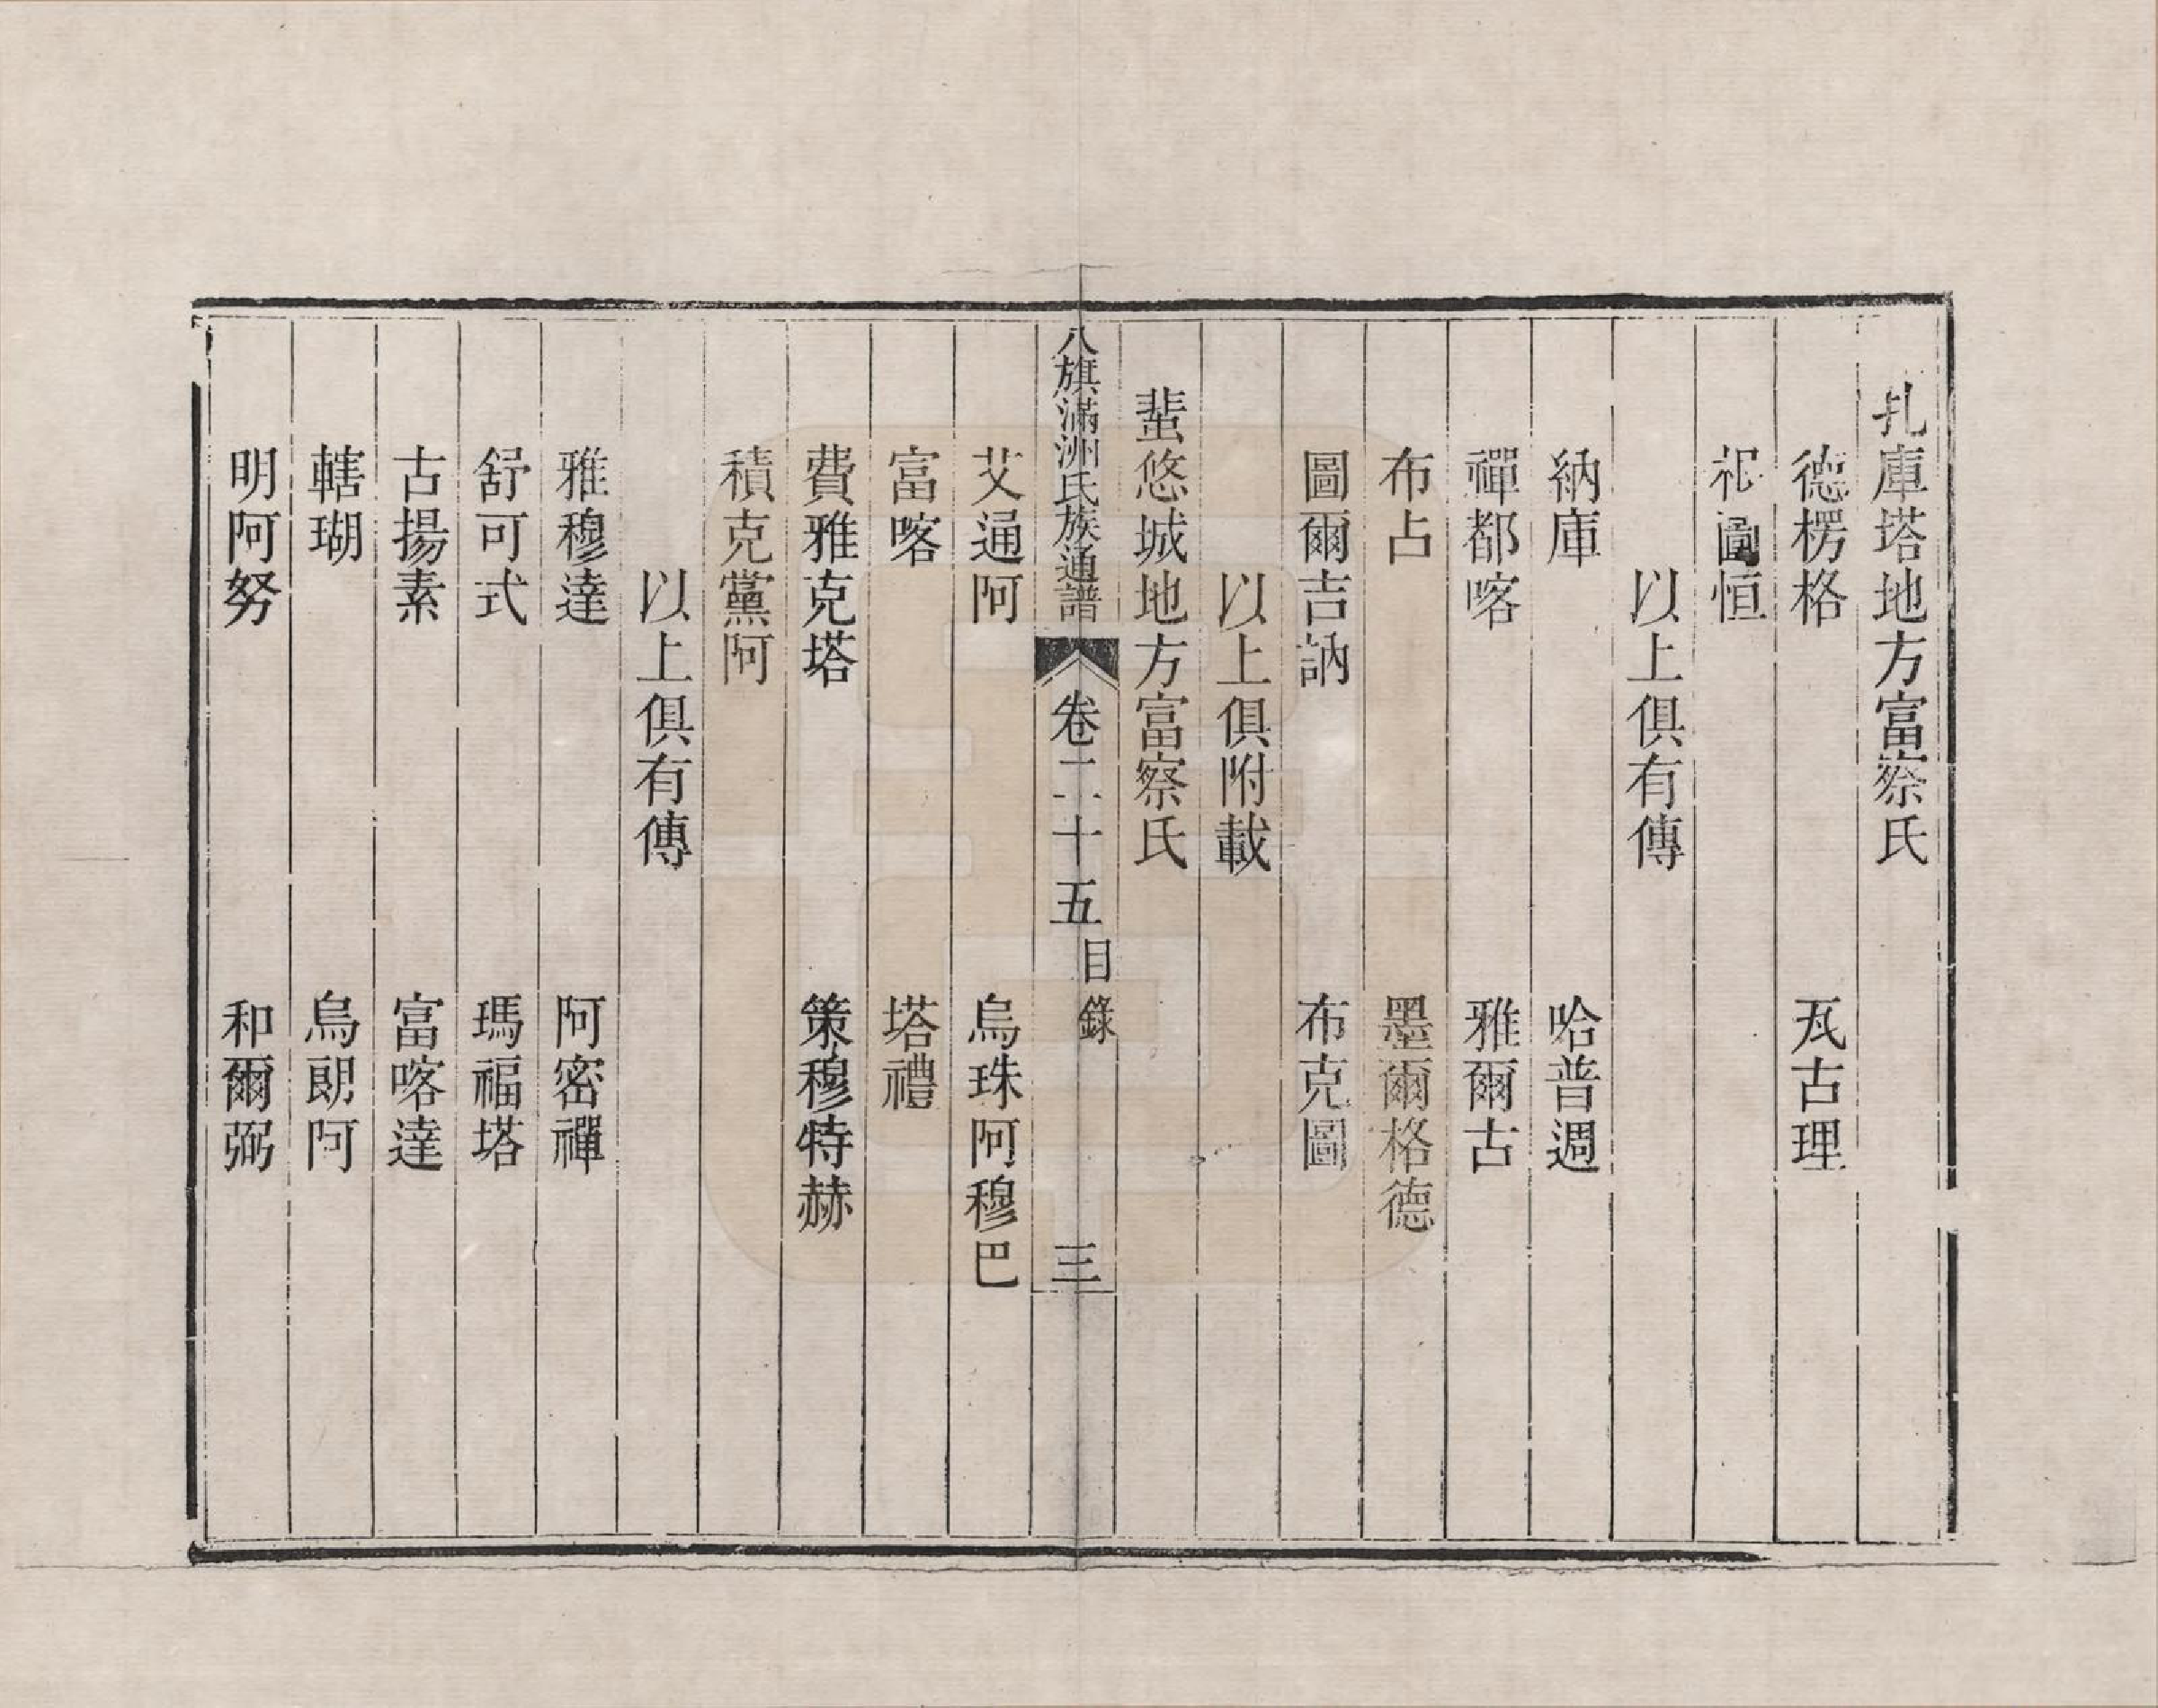 扎庫塔地方富察氏
德楞格　瓦古理
祁圖恒
以上俱有傳
納庫　哈普週
禪都喀　雅爾古
布占　墨爾格德
圖爾吉訥　布克圖
以上俱附載
蜚悠城地方富察氏
八旗滿洲氏族通譜　卷二十五　目錄　三
艾通阿　烏珠阿穆巴
富喀　塔禮
費雅克塔　策穆特赫
積克黨阿
以上俱有傳
雅穆達　阿密禪
舒可式　瑪福塔
古揚素　富喀達
轄瑚　烏朗阿
明阿努　和爾弼